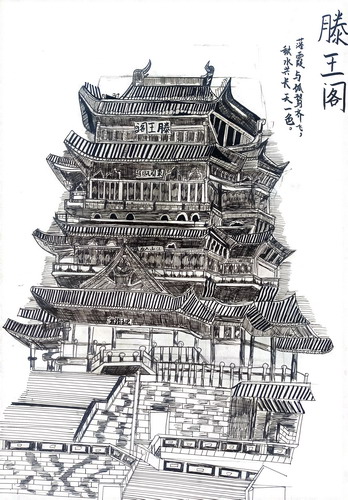 滕王阁
落霞与孤鹜齐飞，
秋水共长天一色。
滕王阁